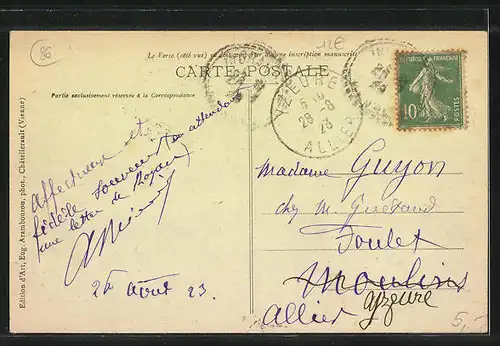 86
12€
Le Verso (côté vue) ne doit porter aucune inscription manuscrite
CARTE POSTALE
Partie exclusivement réservée à la Correspondance
Edition d'Art, Eug. Arambourou, phot., Châtellerault (Vienne)
Affectueux et
fidèle souvenir (en attendant
une letter de Royan)
24 août 23.
YZEURE
5 15
28 -8
23
ALLIER
RÉPUBLIQUE FRANÇAISE
10c
POSTES
Madame Guyon
chez M. Guérand
Toulet
Moulins
Yzeure
Allier
5,-